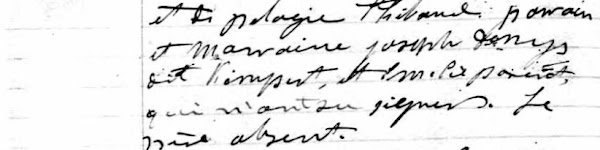 et de pelagie Thibaud. parain
et marraine joseph Denys
dit Kimpert, et parent,
qui n'ont su signer. Le
père absent.